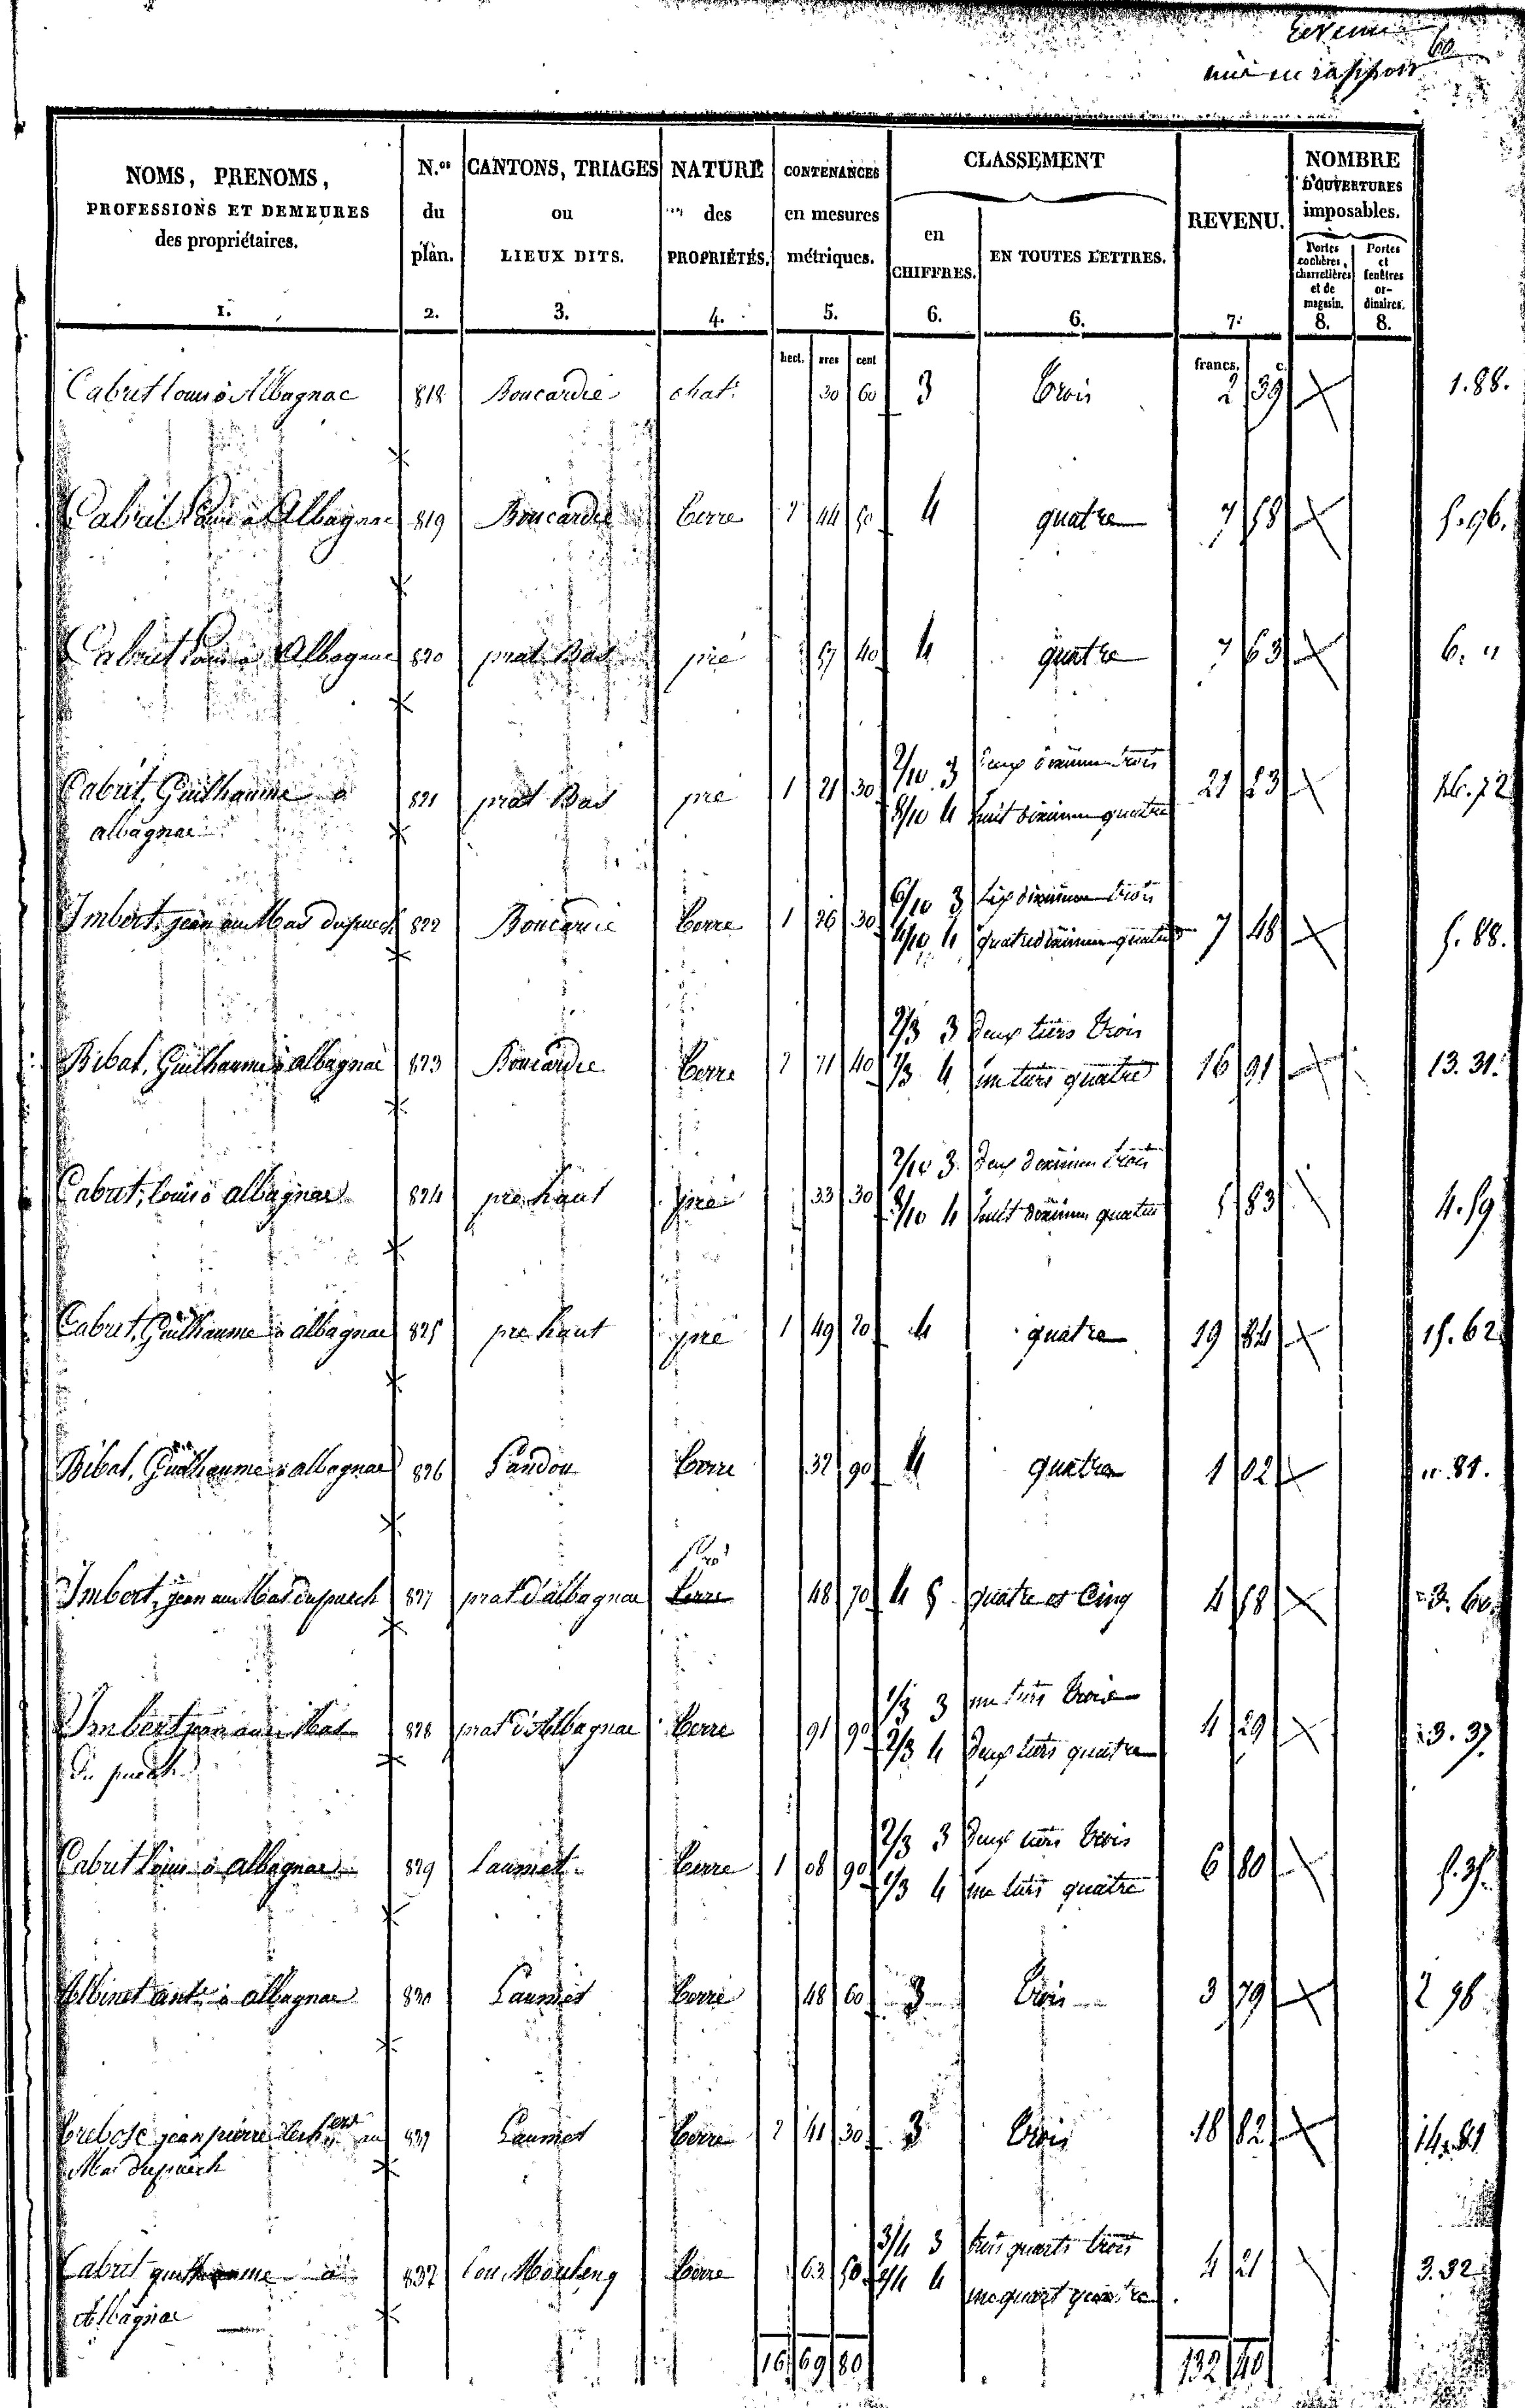 Revenu
mis en rapport
60
NOMS, PRENOMS,
PROFESSIONS ET DEMEURES
des propriétaires.
1.
N.os
du
plan.
2.
CANTONS, TRIAGES
ou
LIEUX DITS.
3.
NATURE
des
PROPRIÉTÉS.
4.
CONTENANCES
en mesures
métriques.
5.
CLASSEMENT
en
CHIFFRES.
6.
EN TOUTES LETTRES.
6.
REVENU.
7.
NOMBRE
D'OUVERTURES
imposables.
Portes cochères, charretières et de magasin.
8.
Portes et fenêtres ordinaires.
8.
hect. ares cent francs, c.
Cabrit louis à Albagnac 818 Boucardie chat. 30 60 3 trois 2 39 1.88.
Cabrit Louis à Albagnac 819 Boucardie terre 2 44 50 4 quatre 7 58 5.96.
Cabrit Louis à Albagnac 820 prat Bas pré 57 40 4 quatre 7 63 6. "
2/10 3 deux dixieme trois
Cabrit, Guilhaume à 821 prat Bas pré 1 21 30 21 23 16.72
albagnac 8/10 4 huit dixieme quatre
6/10 3 six dixieme trois
Imbert, jean au Mas dupuech 822 Boucardie terre 1 26 30 7 48 5.88.
4/10 4 quatre dixieme quatre
2/3 3 deux tiers trois
Bibal, Guilhaume à albagnac 823 Boucardie terre 2 71 40 1/3 4 un tiers quatre 16 91 13.31.
2/10 3 deux dixieme trois
Cabrit, louis à albagnac 824 pre haut pré 33 30 8/10 4 huit dixieme quatre 5 83 4.59
Cabrit, Guilhaume à albagnac 825 pre haut pré 1 49 20 4 quatre 19 84 15.62
Bibal, Guilhaume à albagnac 826 Landou terre 32 90 4 quatre 1 02 ". 81.
pré
Imbert, jean au Mas dupuech 827 prat d'albagnac terre 48 70 4 5 quatre et Cinq 4 58 3.60.
1/3 3 un tiers trois
Imbert jean au Mas 828 prat d'Albagnac terre 91 90 4 29 3.37.
du puech 2/3 4 deux tiers quatre
2/3 3 deux tiers trois
Cabrit louis à albagnac 829 Laumet terre 1 08 90 6 80 5.35.
1/3 4 un tiers quatre
Albinet ant.e à albagnac 830 Laumet terre 48 60 3 trois 3 79 2 98
Trebosc jean pierre au 831 Laumet terre 2 41 30 3 trois 18 82 14.81
Mas dupuech
3/4 3 trois quarts trois
Cabrit guilhaume à 832 lou Mouleng terre 63 50 1/4 4 un quart quatre 4 21 3.32
Albagnac
16 69 80 132 40